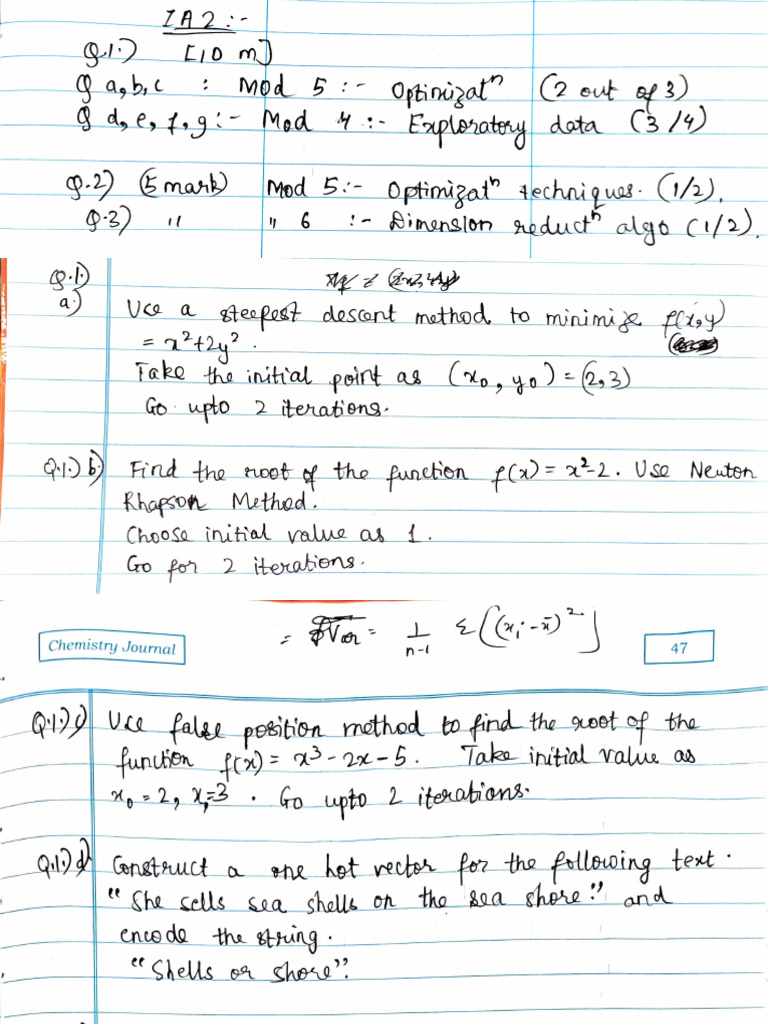 IA2:-
Q.1) [10 m]
Q a,b,c : Mod 5 :- Optimizatⁿ (2 out of 3)
Q d,e,f,g :- Mod 4 :- Exploratory data (3/4)
Q.2) (5 mark) Mod 5:- Optimizatⁿ techniques. (1/2).
Q.3) " " 6 :- Dimension reductⁿ algo (1/2).
Q.1)
a.) Use a steepest descent method to minimize f(x,y)
= x²+2y².
Take the initial point as (x₀, y₀) = (2,3)
Go upto 2 iterations.
Q.1.) b.) Find the root of the function f(x) = x²-2. Use Newton
Rhapson Method.
Choose initial value as 1.
Go for 2 iterations.
= Var = 1/n-1 Σ((xᵢ-x̄)²)
Chemistry Journal
47
Q.1.) c) Use false position method to find the root of the
function f(x) = x³ - 2x - 5. Take initial value as
x₀ = 2, x₁=3. Go upto 2 iterations.
Q.1.) d) Construct a one hot vector for the following text.
"She sells sea shells on the sea shore." and
encode the string.
"Shells or shore".